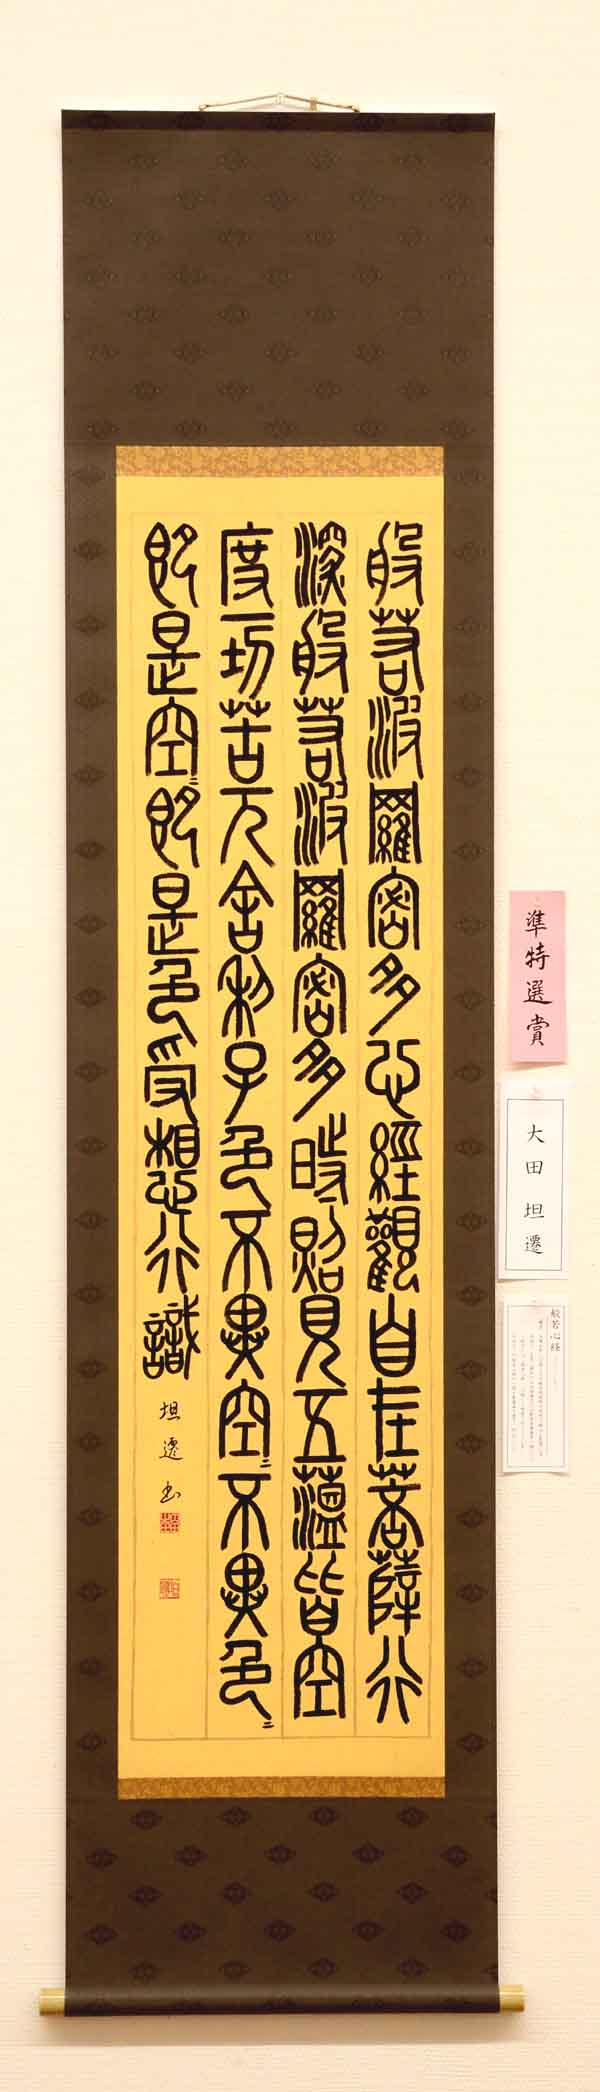 般若波羅密多心經觀自在菩薩行
深般若波羅密多時照見五蘊皆空
度一切苦厄舍利子色不異空〻不異色〻
即是空〻即是色受想行識
坦遷書
準特選賞
大田坦遷
般若心経